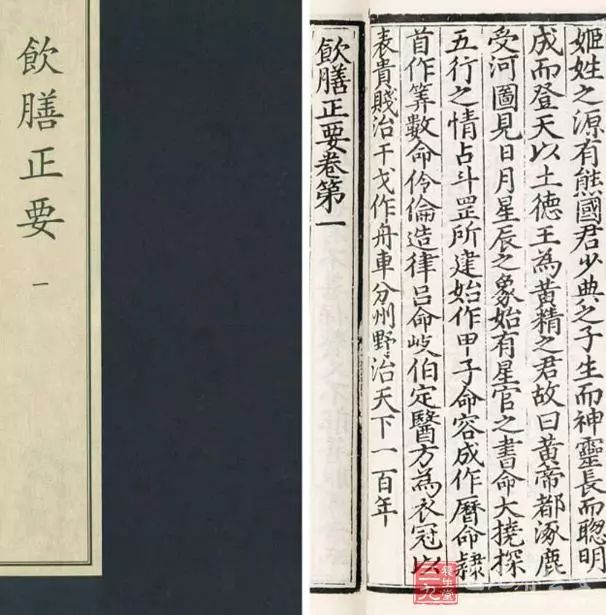 飲膳正要
一
姬姓之源有熊國君少典之子生而神靈長而聰明
成而登天以土德王為黃精之君故曰黃帝都涿鹿
受河圖見日月星辰之象始有星官之書命大撓探
五行之情占斗罡所建始作甲子命容成作曆命隸
首作筭數命伶倫造律呂命岐伯定醫方為衣冠以
表貴賤治干戈作舟車分州野治天下一百年
飲膳正要卷第一